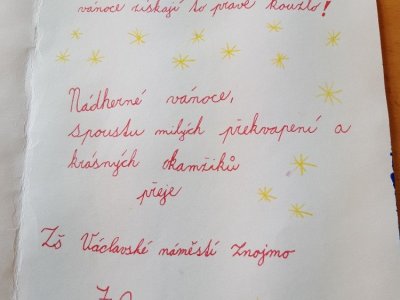 vánoce získají to pravé kouzlo!
Nádherné vánoce,
spoustu milých překvapení a
krásných okamžiků
přeje
Zš Václavské náměstí Znojmo